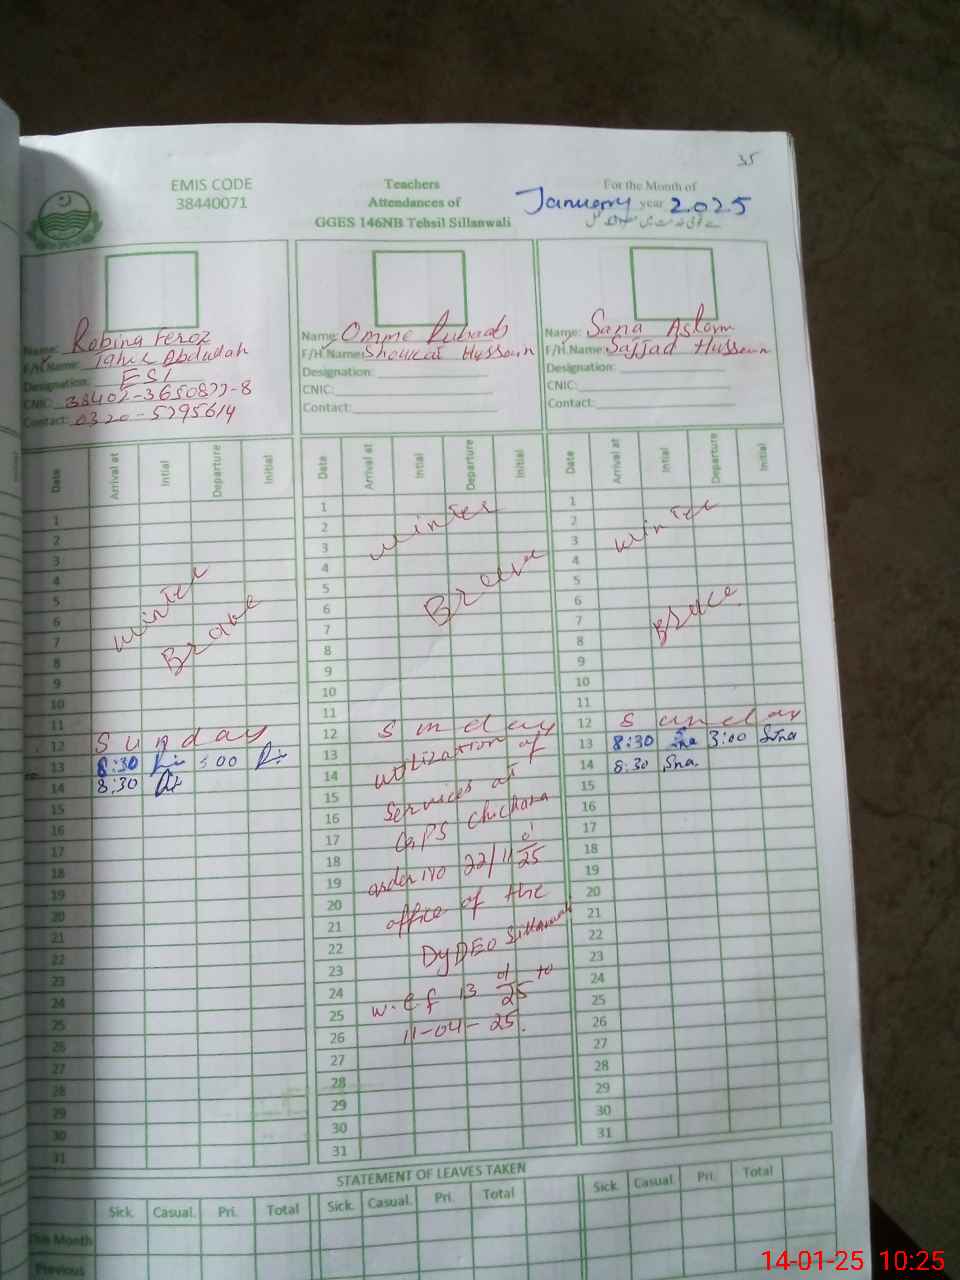 35
EMIS CODE
38440071
Teachers
Attendances of
GGES 146NB Tehsil Sillanwali
For the Month of
January year 2025
Name: Robina Feroz
F/H.Name: Tahir Abdullah
Designation: EST
CNIC: 38402-3650877-8
Contact: 0320-5795614
Name: Omme Rubaab
F/H.Name: Shoukat Hussain
Designation:
CNIC:
Contact:
Name: Sana Aslam
F/H.Name: Sajjad Hussain
Designation:
CNIC:
Contact:
Date Arrival at Intial Departure Initial
1
2
3
4
5
6
7
8
9
10
11
12
13
14
15
16
17
18
19
20
21
22
23
24
25
26
27
28
29
30
31
winter
Sunday
8:30 :00
8:30
Date Arrival at Intial Departure Initial
1
2
3
4
5
6
7
8
9
10
11
12
13
14
15
16
17
18
19
20
21
22
23
24
25
26
27
28
29
30
31
winter
Sunday
utilization of
Services at
GPS chichana
order no 22/11 01/25
office of the
DyDEO Sillanwali
w.e.f 13 01/25 to
11-04-25.
Date Arrival at Intial Departure Initial
1
2
3
4
5
6
7
8
9
10
11
12
13
14
15
16
17
18
19
20
21
22
23
24
25
26
27
28
29
30
31
winter
Sunday
8:30 Sna 3:00 Sna
8:30 Sna.
STATEMENT OF LEAVES TAKEN
Sick. Casual. Pri. Total Sick. Casual. Pri. Total Sick. Casual. Pri. Total
This Month
Previous
14-01-25 10:25